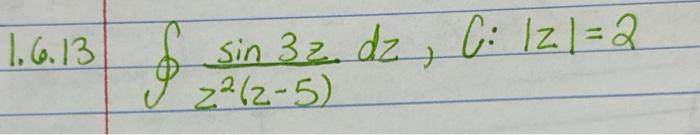 1.6.13 ∮ sin 3z / z²(z-5) dz, C: |z|=2